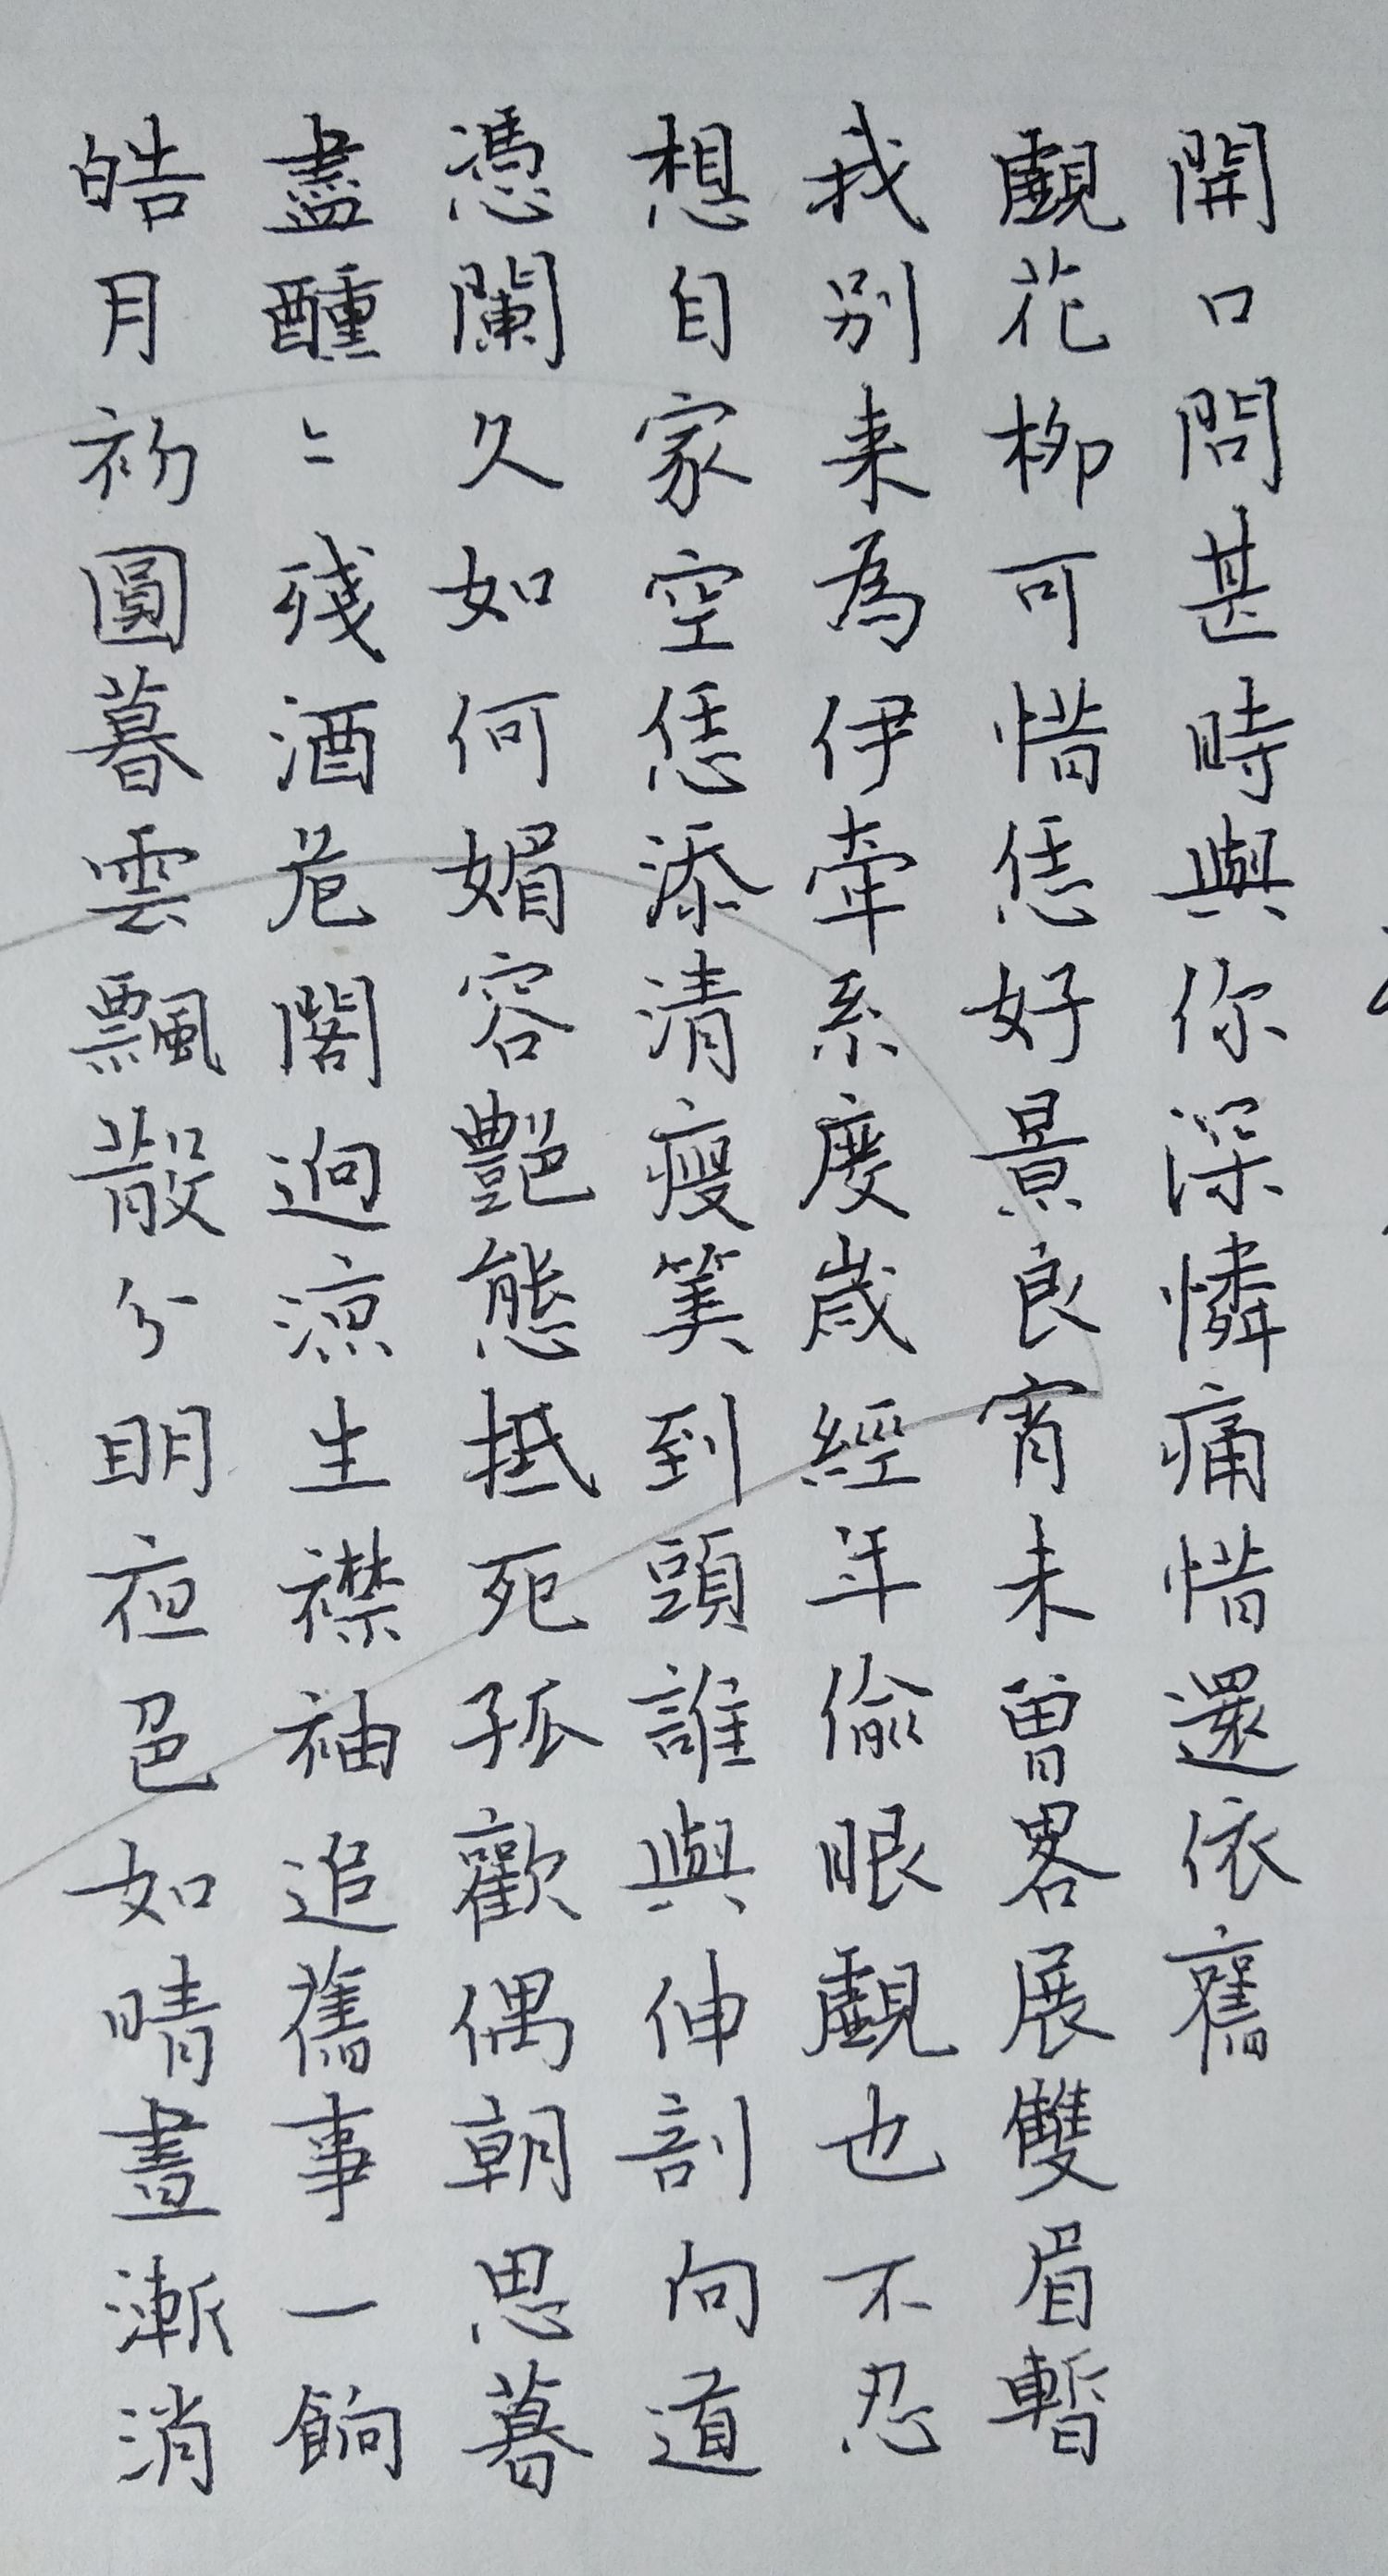 皓月初圓暮雲飄散分明夜色如晴晝漸消
盡醺〻殘酒危閣逈涼生襟袖追舊事一餉
憑闌久如何媚容艷態抵死孤歡偶朝思暮
想自家空恁添清瘦筭到頭誰與伸剖向道
我別来為伊牽系度歲經年偷眼覷也不忍
覷花柳可惜恁好景良宵未曾畧展雙眉暫
開口問甚時與你深憐痛惜還依舊